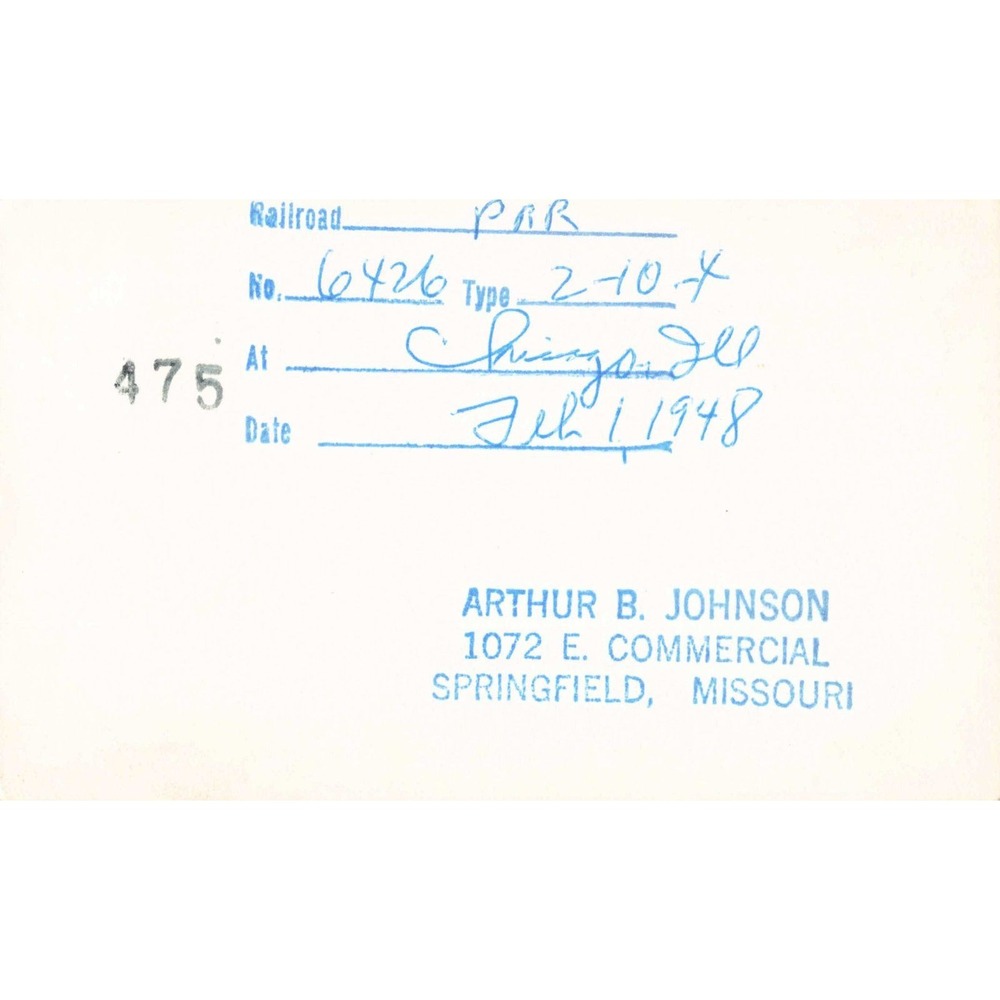 Railroad PRR
No. 6426 Type 2-10-4
At Chicago, Ill
475
Date Feb 1, 1948
ARTHUR B. JOHNSON
1072 E. COMMERCIAL
SPRINGFIELD, MISSOURI